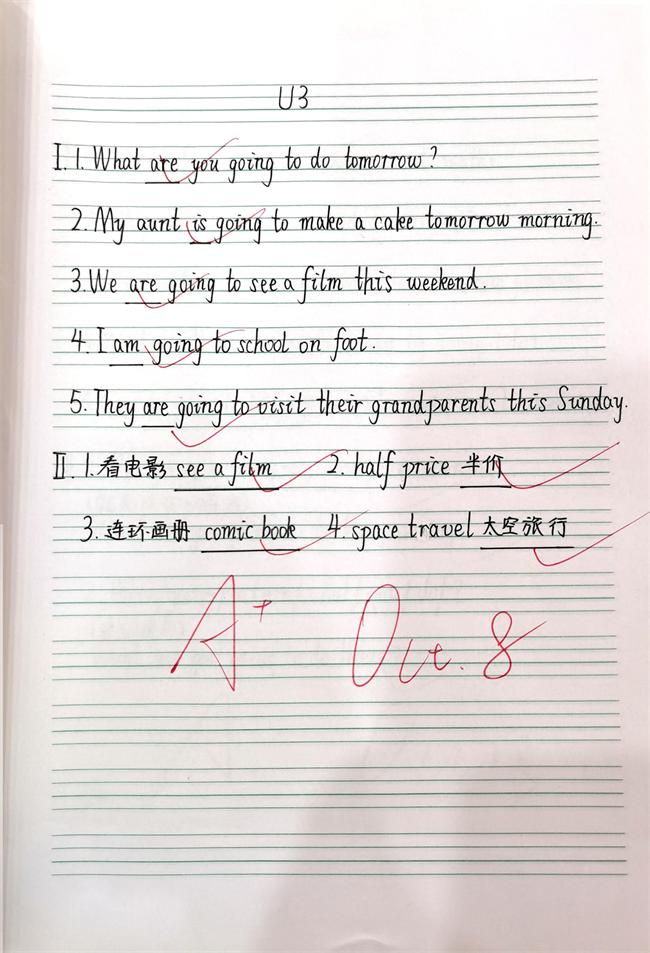 U3
I. 1. What are you going to do tomorrow?
2. My aunt is going to make a cake tomorrow morning.
3. We are going to see a film this weekend.
4. I am going to school on foot.
5. They are going to visit their grandparents this Sunday.
II. 1. 看电影 see a film 2. half price 半价
3. 连环画册 comic book 4. space travel 太空旅行
A+ Oct. 8